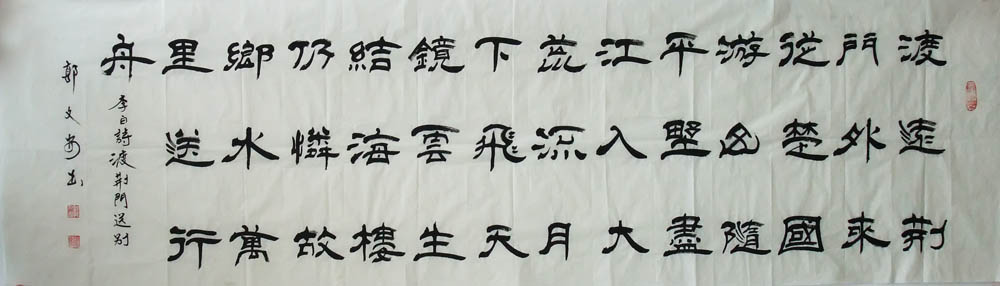 渡遠荊
門外來
從楚國
游山隨
平墅盡
江入大
荒流月
下飛天
鏡雲生
結海樓
仍憐故
鄉水萬
里送行
舟
李白詩渡荊門送別
郭文安书